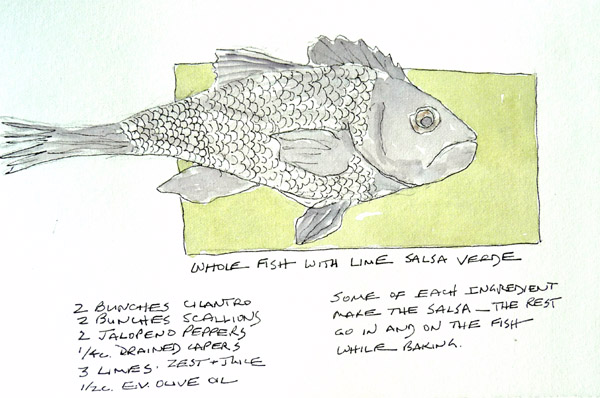 WHOLE FISH WITH LIME SALSA VERDE
2 BUNCHES CILANTRO
2 BUNCHES SCALLIONS
2 JALOPENO PEPPERS
1/4C. DRAINED CAPERS
3 LIMES. ZEST + JUICE
1/2C. E.V. OLIVE OIL
SOME OF EACH INGREDIENT
MAKE THE SALSA – THE REST
GO IN AND ON THE FISH
WHILE BAKING.